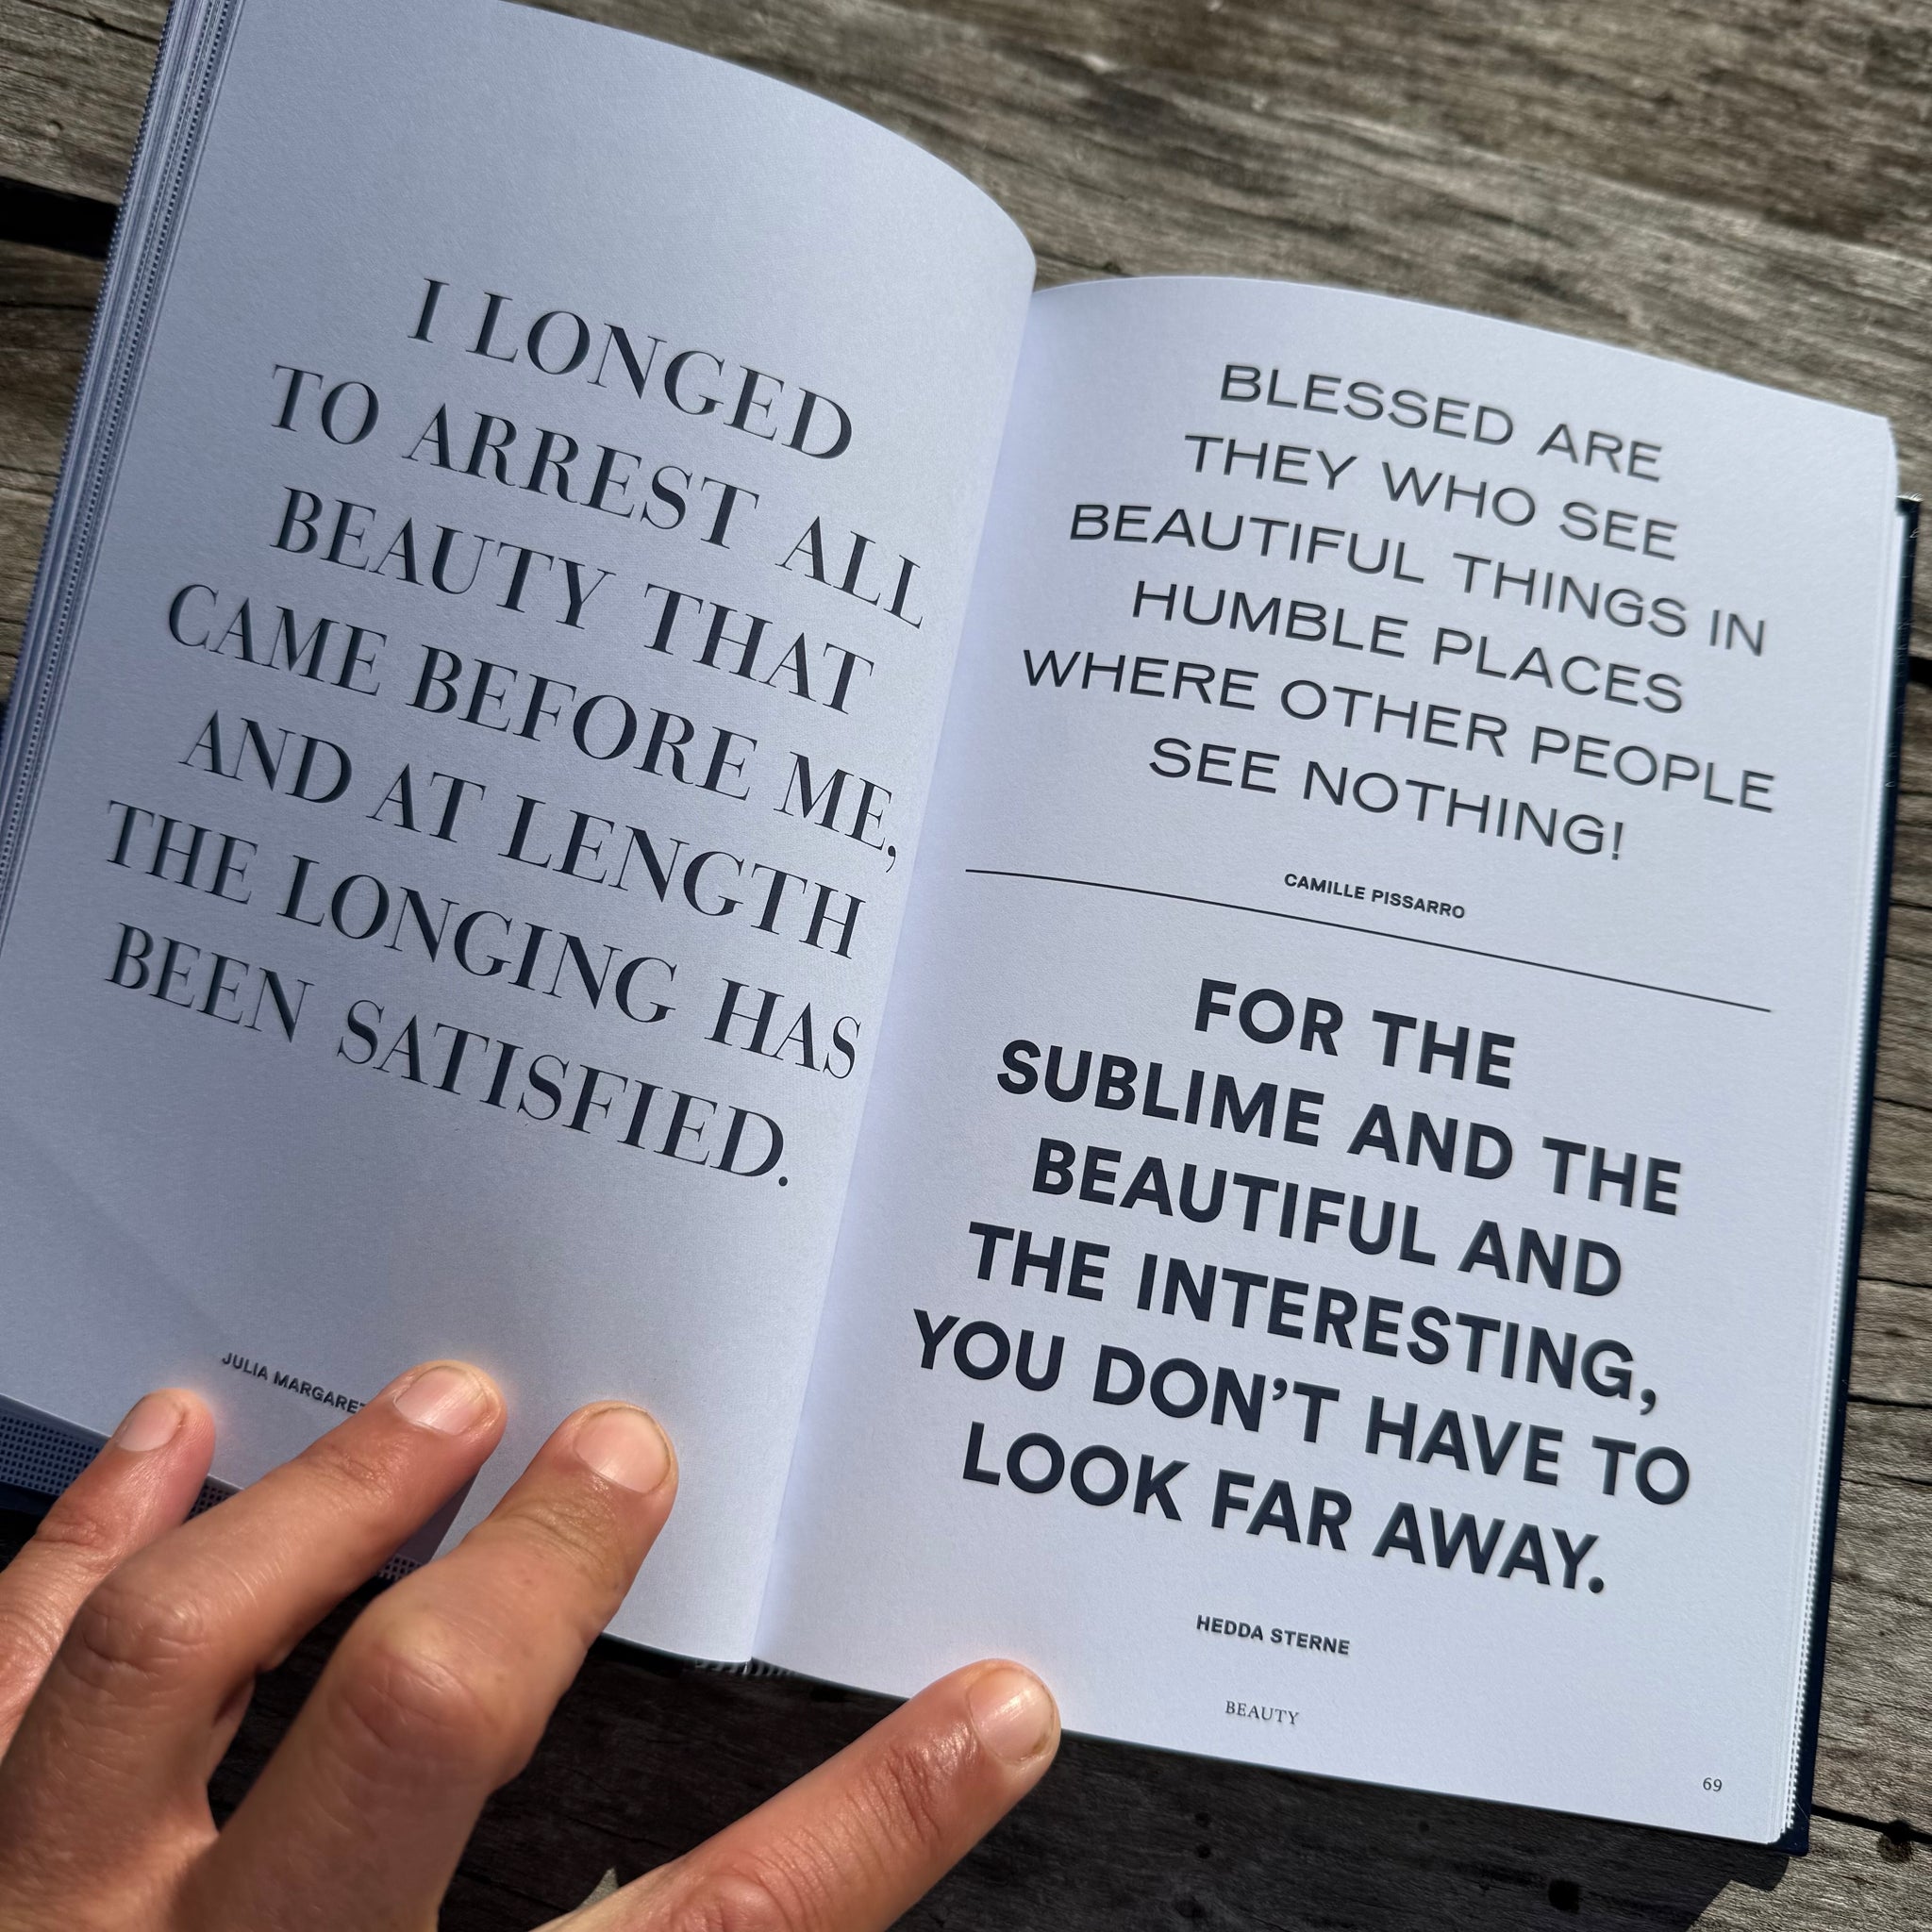 I LONGED
TO ARREST ALL
BEAUTY THAT
CAME BEFORE ME,
AND AT LENGTH
THE LONGING HAS
BEEN SATISFIED.
JULIA MARGARET
BLESSED ARE
THEY WHO SEE
BEAUTIFUL THINGS IN
HUMBLE PLACES
WHERE OTHER PEOPLE
SEE NOTHING!
CAMILLE PISSARRO
FOR THE
SUBLIME AND THE
BEAUTIFUL AND
THE INTERESTING,
YOU DON’T HAVE TO
LOOK FAR AWAY.
HEDDA STERNE
BEAUTY
69